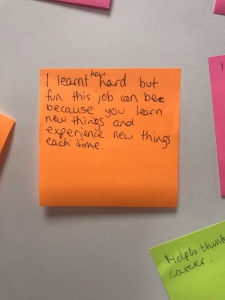 I learnt how hard but
fun this job can be
because you learn
new things and
experience new things
each time.
Helps think
career.